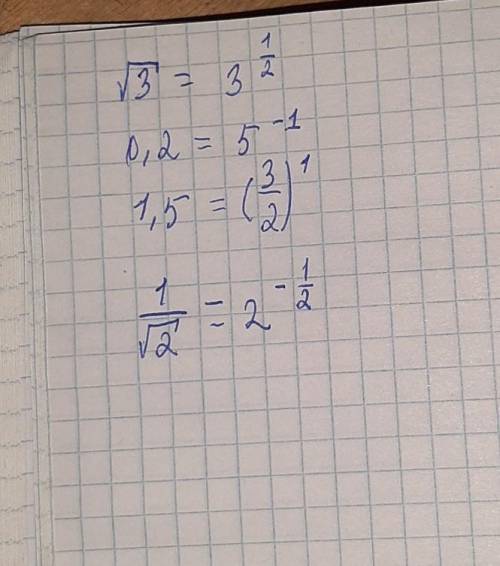 √3 = 3^(1/2)
0,2 = 5^(-1)
1,5 = (3/2)^1
1/√2 = 2^(-1/2)